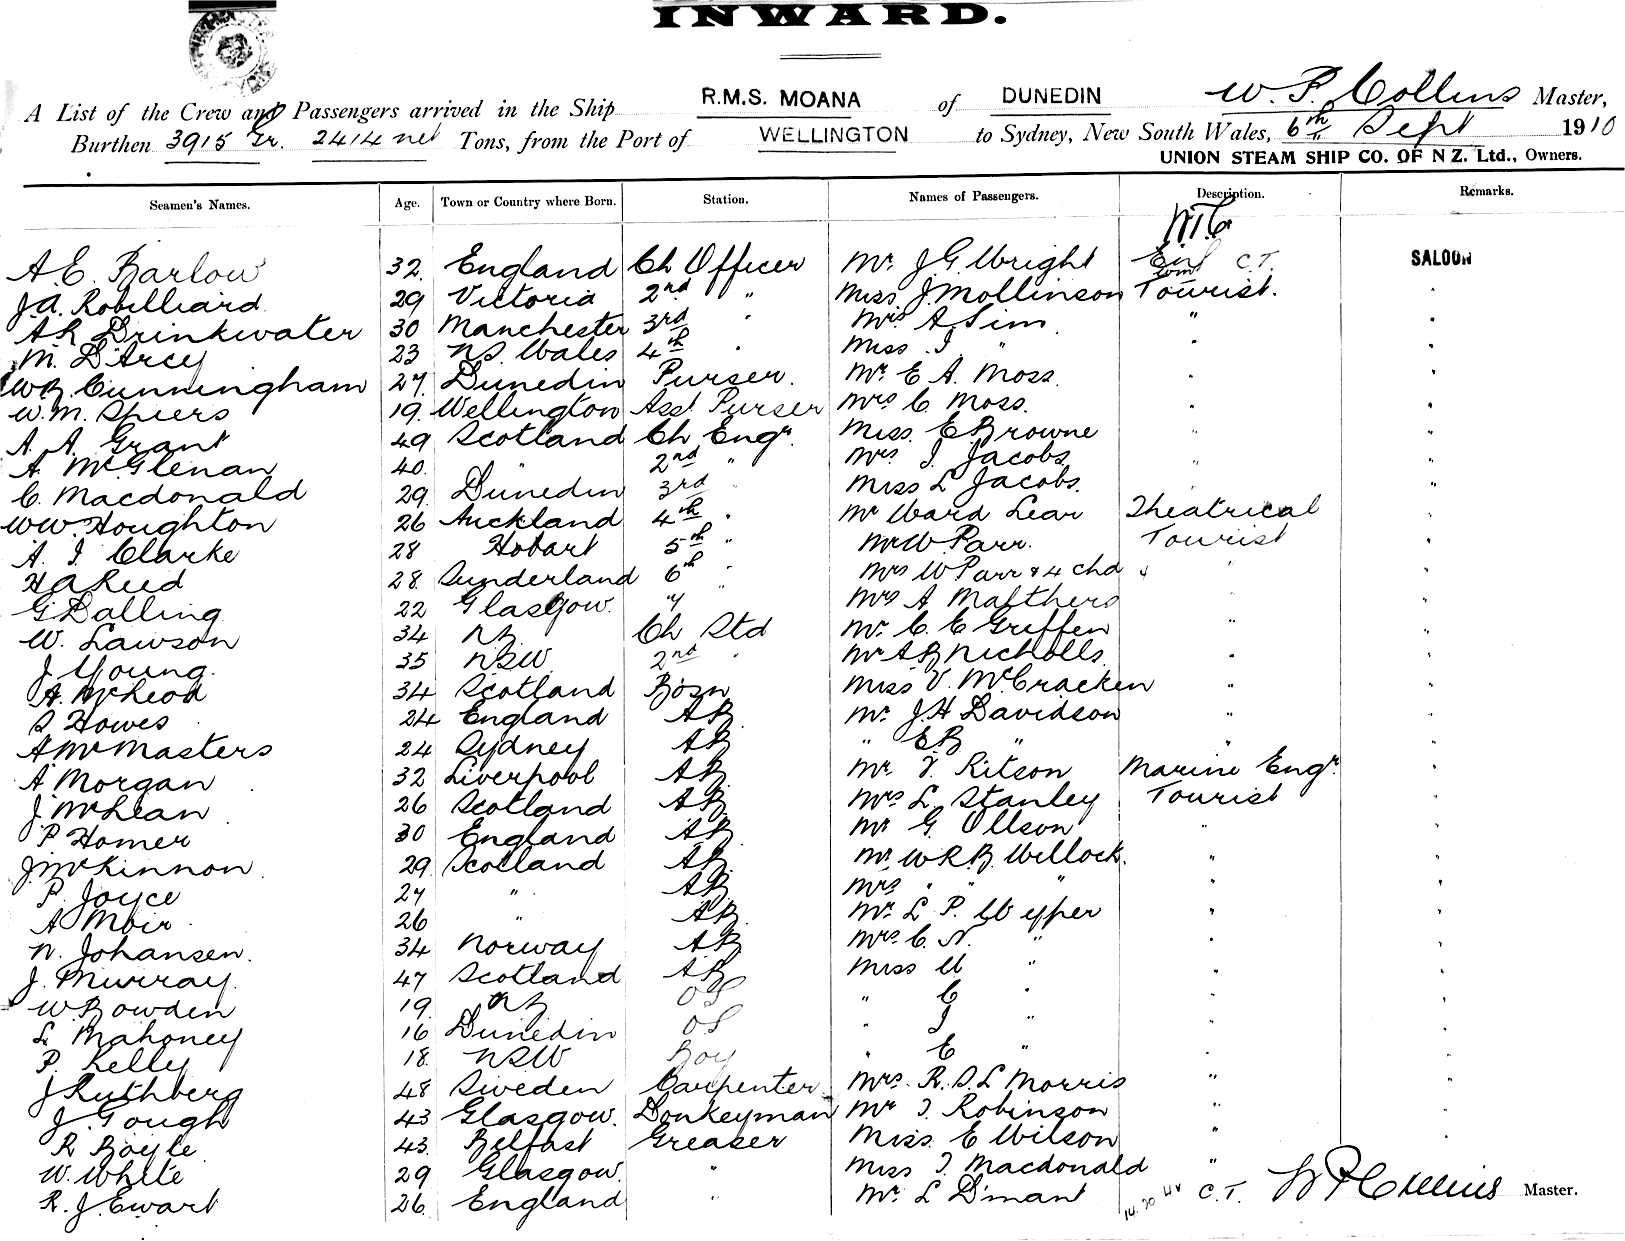 INWARD.
A List of the Crew and Passengers arrived in the Ship R.M.S. MOANA of DUNEDIN W. F. Collins Master,
Burthen 3915 Gr. 2414 net Tons, from the Port of WELLINGTON to Sydney, New South Wales, 6th Sept 1910
UNION STEAM SHIP CO. OF N Z. Ltd., Owners.
Seamen's Names. Age. Town or Country where Born. Station. Names of Passengers. Description. Remarks.
A. E. Barlow 32. England Ch Officer Mr J. G. Wright C.T. SALOON
J. A. Robilliard 29 Victoria 2nd " Miss J. Mollinson Tourist.
A R Drinkwater 30 Manchester 3rd " Mrs A Sim "
M. D'Arcy 23 N.S. Wales 4th " Miss I " "
W B Cunningham 27. Dunedin Purser. Mr E A. Moss "
W. M. Spiers 19. Wellington Asst Purser Mrs C Moss. "
A. A. Grant 49 Scotland Ch Engr. Miss. E Browne "
A. McGlenan 40. " 2nd " Mrs I Jacobs "
C. Macdonald 29. Dunedin 3rd " Miss L Jacobs. "
W W. Houghton 26 Auckland 4th " Mr Ward Lear Theatrical "
A. I Clarke 28 Hobart 5th " Mr W. Parr. Tourist "
H A Reed 28. Sunderland 6th " Mrs W Parr & 4 chd " "
G Dalling 22 Glasgow. 7 " Mrs A Matthers "
W. Lawson 34 NZ Ch Std Mr C. C Griffen " "
J Young. 35 NSW 2nd " Mr A B Nicholls " "
A. McLeod 34 Scotland Bosn Miss V. McCracken " "
S Howes 24 England AB Mr J. H Davidson " "
A McMasters 24 Sydney AB " E B " " "
A Morgan 32 Liverpool AB Mr T. Ritson Marine Engr. "
J McLean 26 Scotland AB Mrs L. Stanley Tourist "
P Homer 30 England AB Mr G. Ollson " "
J McKinnon. 29. Scotland AB Mr W R B. Willock. " "
P. Joyce 27 " AB Mrs " " " " "
A Moir 26 " AB Mr L P. Wypper " "
N. Johansen. 34 Norway AB Mrs. C. N. " " "
J. Murray. 47 Scotland AB Miss U " " "
W. Bowden 19. NZ OS " G " " "
L Mahoney 16 Dunedin OS " I " " "
P. Kelly 18. NSW Boy " E " " "
J Ruthberg 48 Sweden Carpenter Mrs. R. S. L Morris " "
J. Gough 43 Glasgow. Donkeyman Mr T. Robinson " "
R Boyle 43. Belfast Greaser Miss. E Wilson " "
W. White 29 Glasgow. " Miss T. Macdonald "
R. J. Ewart 26. England " Mr L D'mant C.T. W F Collins Master.